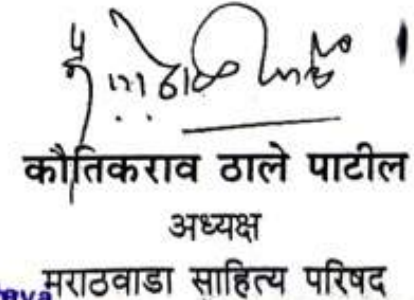 कौतिकराव ठाले पाटील
अध्यक्ष
मराठवाडा साहित्य परिषद